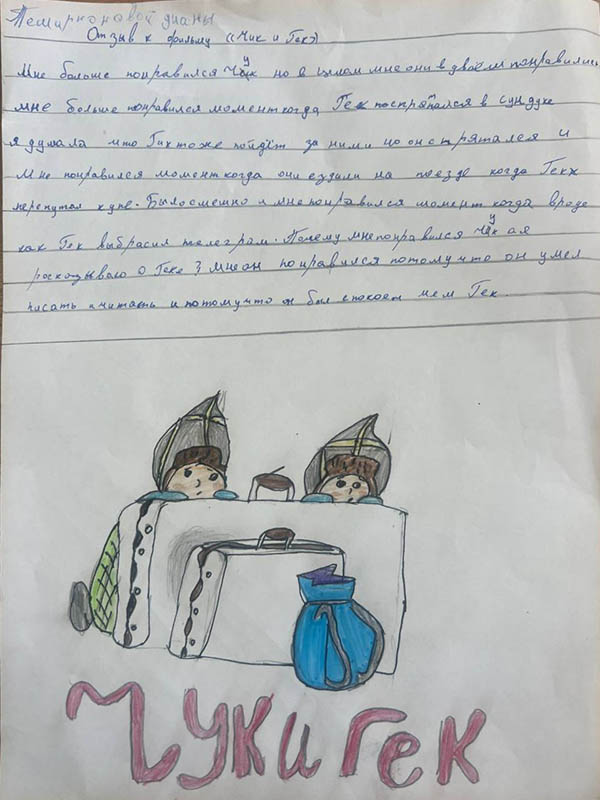 Темирконовой Дианы
Отзыв к фильму ((Чик и Гек))
Мне больше понравился Чук но в целом мне они в двоём понравились
мне больше понравился момент когда Гек поспрятался в сундуке
я думала что Гик тоже пойдёт за ними но он спрятался и
мне понравился момент когда они ездили на поезде когда Гекк
перепутал купе. Было смешно и мне понравился момент когда вроде
как Гек выбрасил телеграм. Почему мне понравился Чук а я
роскозываю о Геке? мне он понравился потому что он умел
писать и читать и потому что он был спокоен чем Гек.
Чук и Гек